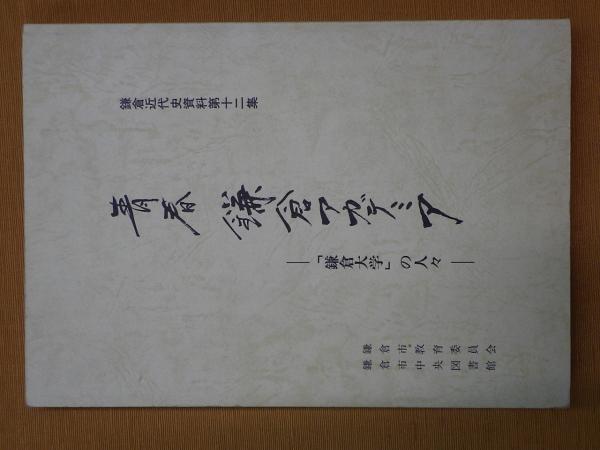 鎌倉近代史資料第十二集
青春 鎌倉アカデミア
―「鎌倉大学」の人々―
鎌倉市教育委員会
鎌倉市中央図書館